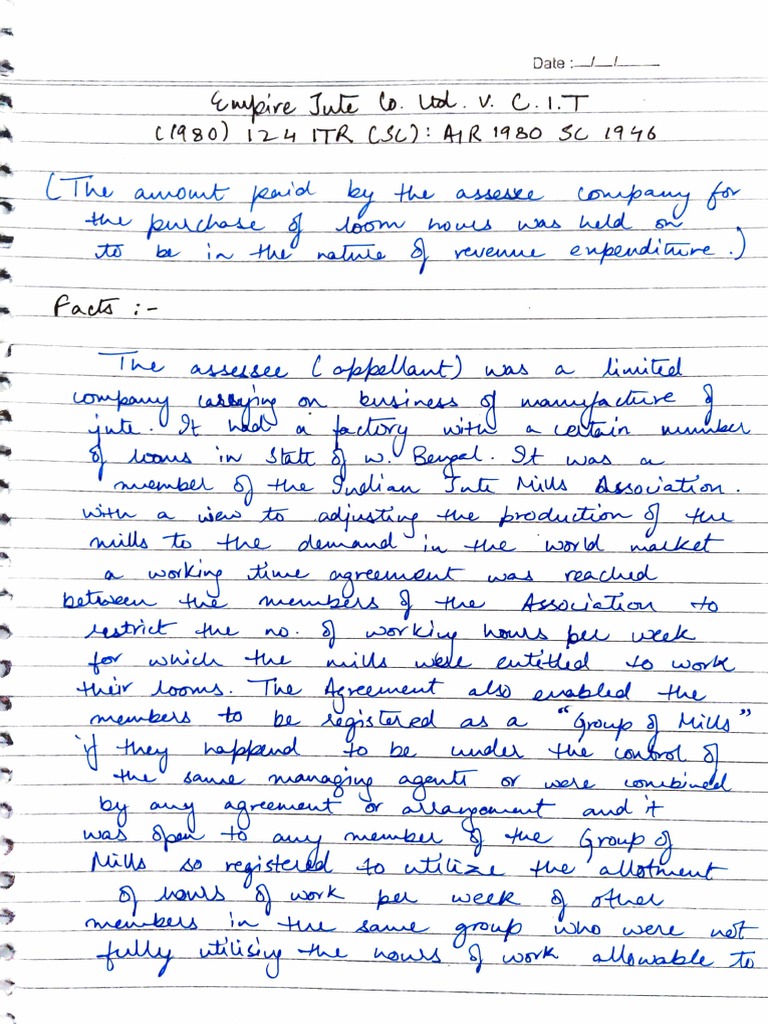 Date :__/__/____
Empire Jute Co. Ltd. v. C.I.T
(1980) 124 ITR (SC): AIR 1980 SC 1946
(The amount paid by the assesee company for
the purchase of loom hours was held on
to be in the nature of revenue expenditure.)
Facts :-
The assessee (appellant) was a limited
company carrying on business of manufacture of
jute. It had a factory with a certain number
of looms in State of W. Bengal. It was a
member of the Indian Jute Mills Association.
With a view to adjusting the production of the
mills to the demand in the world market
a working time agreement was reached
between the members of the Association to
restrict the no. of working hours per week
for which the mills were entitled to work
their looms. The Agreement also enabled the
members to be registered as a "Group of Mills"
if they happend to be under the control of
the same managing agents or were combined
by any agreement or arrangement and it
was open to any member of the Group of
Mills so registered to utilize the allotment
of hours of work per week of other
members in the same group who were not
fully utilising the hours of work allowable to